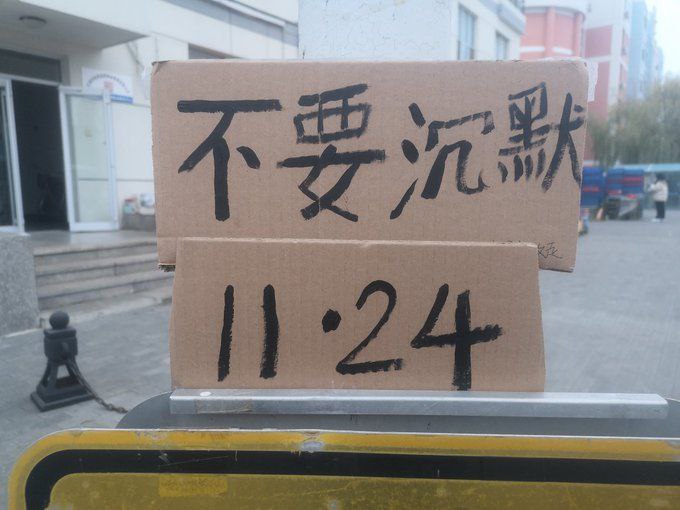 不要沉默
11·24